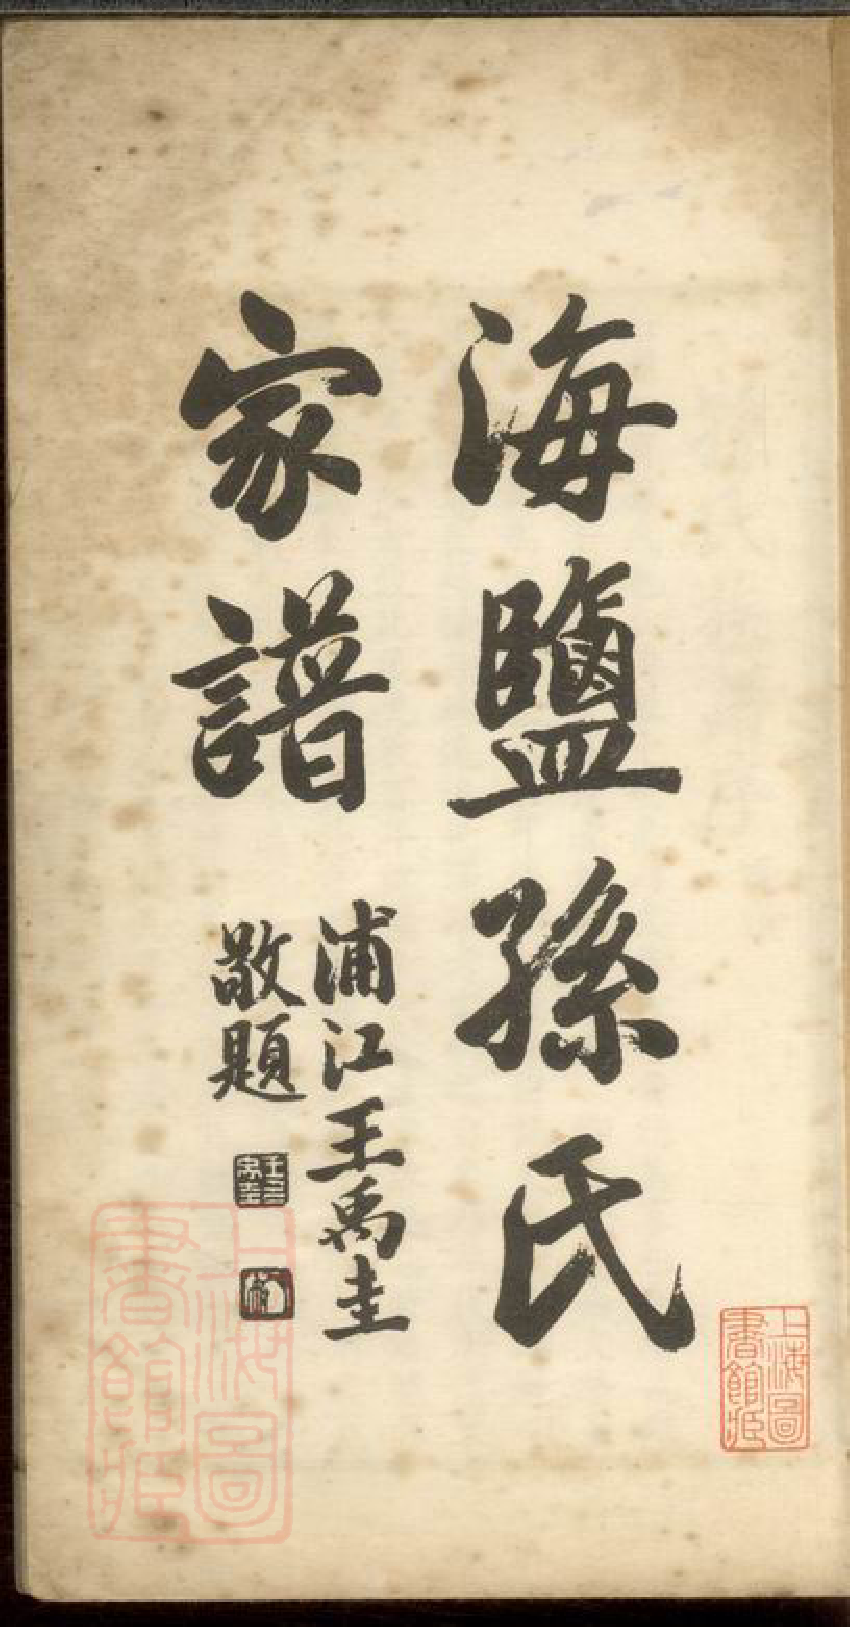 海鹽孫氏
家譜
浦江王禹圭
敬題
上海圖
書館藏
上海圖
書館藏